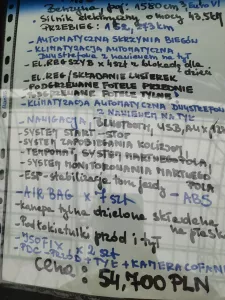 Benzyna, poj. 1580 cm³ Euro VI
Silnik elektryczny o mocy 43.5
PRZEBIEG: 162.
- AUTOMATYCZNA SKRZYNIA BIEGÓW
- KLIMATYZACJA AUTOMATYCZNA
Dwustrefowa z nawiewem na tył
- EL.REG SZYB x 4szt z blokadą dla
dzieci
- EL.REG/SKŁADANIE LUSTEREK
PODGRZEWANE FOTELE PRZEDNIE
- KLIMATYZACJA AUTOMATYCZNA DWUSTREFOWA
Z NAWIEWEM NA TYŁ
- NAWIGACJA, BLUETOOTH, USB, AUX 12V
- SYSTEM START-STOP
- SYSTEM ZAPOBIEGANIA KOLIZJOM
- TEMPOMAT, SYSTEM MARTWEGO POLA
- SYSTEM MONITOROWANIA MARTWEGO
POLA
- ESP - stabilizacja toru jazdy
- ABS
- AIR BAG x 7szt
- kanapa tylna dzielona składana
na płasko
- Podłokietniki przód i tył
- ISOFIX x 2szt
- PDC - PRZÓD + TYŁ + KAMERA COFANIA
Cena: 54,700 PLN